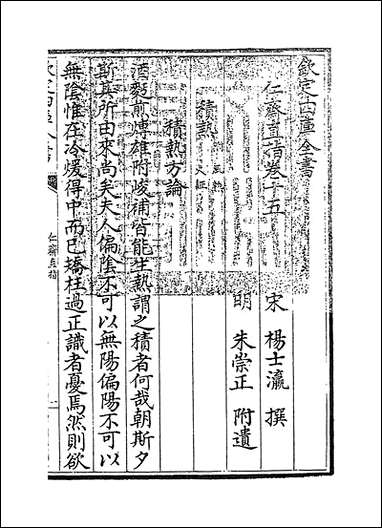 欽定四庫全書
仁齋直指卷十五
宋 楊士瀛 撰
明 朱崇正 附遺
積熱
積熱方論
酒麪煎煿雄附峻補皆能生熱謂之積者何哉朝斯夕
斯其所由來尚矣夫人偏陰不可以無陽偏陽不可以
無陰惟在冷煖得中而已矯枉過正識者憂焉然則欲
仁齋直指